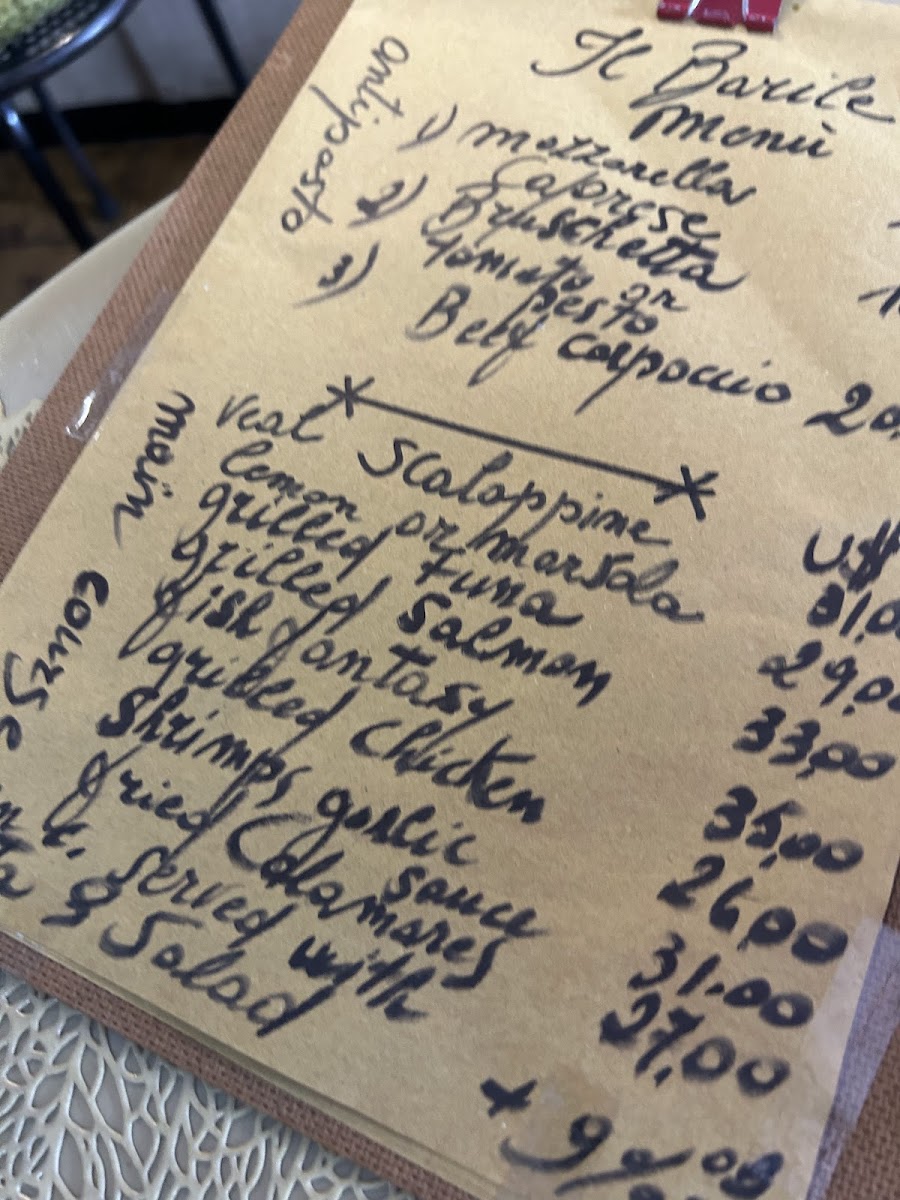 Il Barile
menù
antipasto
1) mozzarella
Caprese
2) Bruschetta
tomato or
pesto
3) Beef carpaccio 20,
main course
U.S.$
veal scaloppine
lemon or marsala 31,00
grilled Tuna 29,0
grilled salmon 33,00
fish fantasy 35,00
grilled chicken 26,00
shrimps garlic
sauce 31.00
fried Calamares 27,00
served with
& Salad
+ 9%